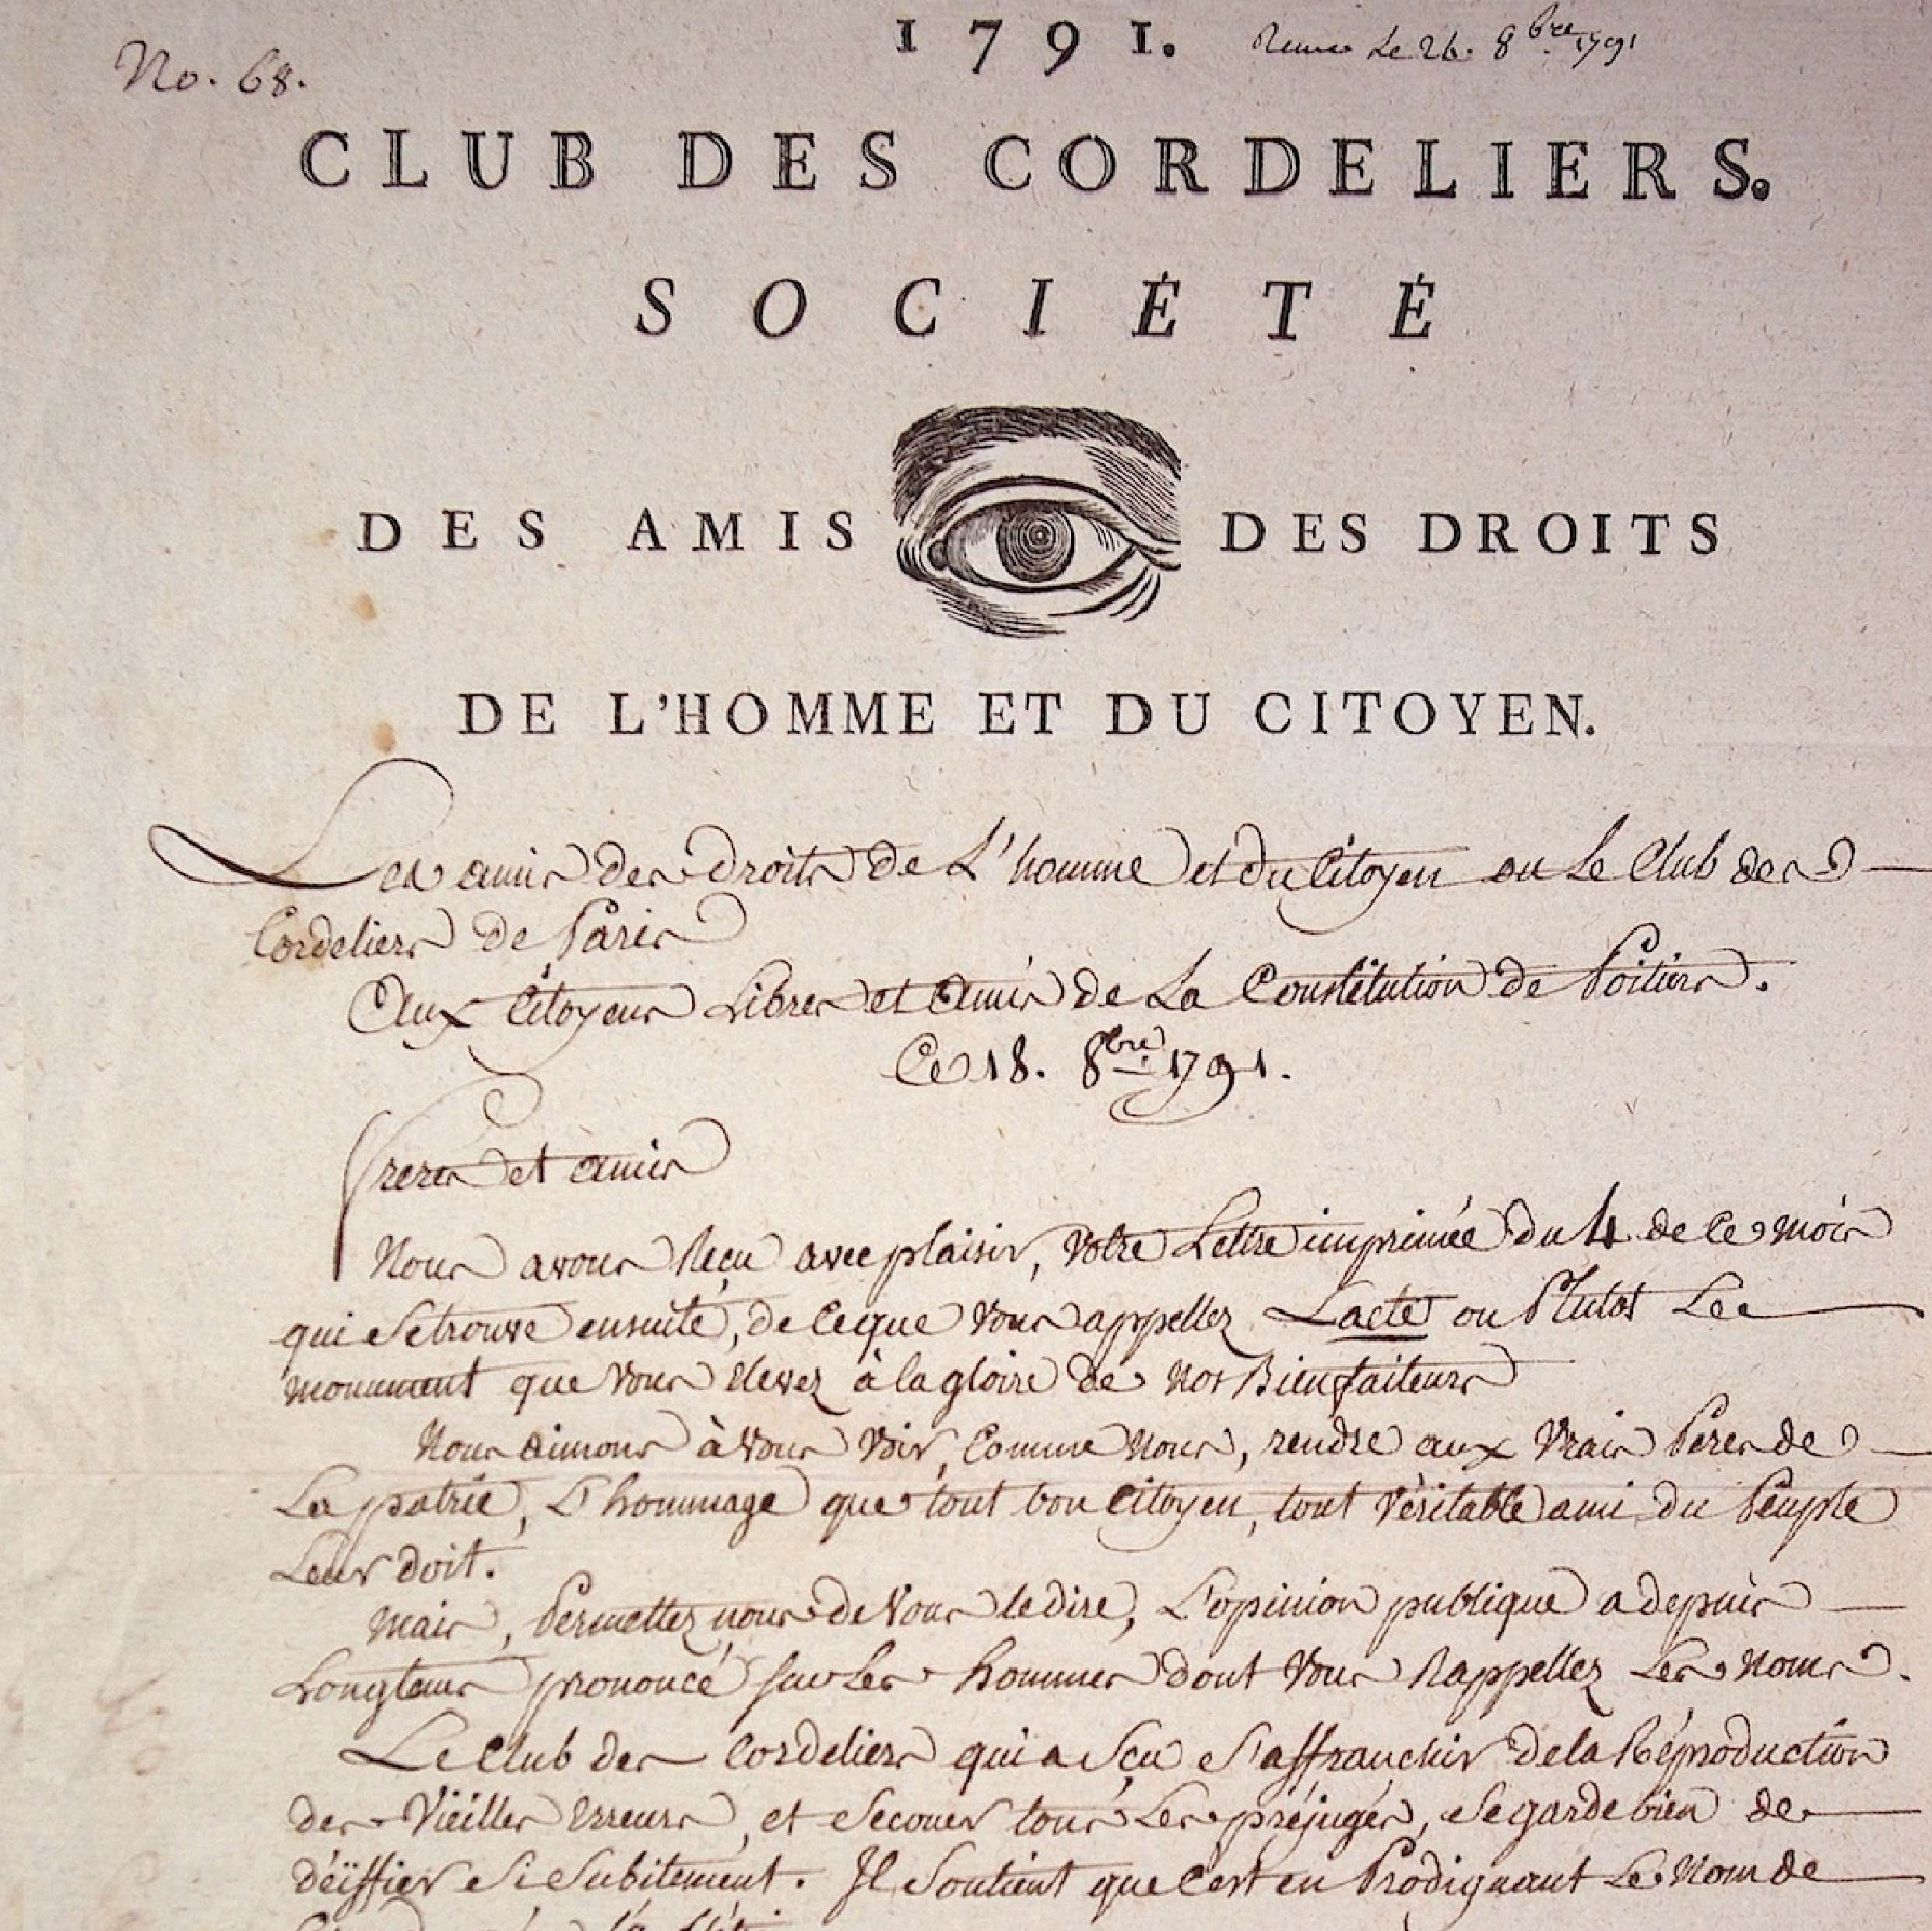 No. 68.
1791. Le 26. 8bre 1791
CLUB DES CORDELIERS.
SOCIÉTÉ
DES AMIS DES DROITS
DE L'HOMME ET DU CITOYEN.
Les amis des droits de L'homme et du Citoyen ou Le Club des
Cordeliers de Paris
Aux Citoyens Libres et Amis de La Constitution de Poitiers.
Ce 18. 8bre 1791.
freres et amis
Nous avons Reçu avec plaisir, Votre Lettre imprimée du 4 de Ce mois
qui Se trouve ensuite, de Ce que Vous appellez Lacte ou Plutot Le
monument que Vous Elevez à la gloire de Nos Bienfaiteurs
Nous aimons à Vous Voir, Comme Nous, rendre aux Vrais Peres de
La patrie, L'hommage que tout bon Citoyen, tout Véritable ami du Peuple
Leur doit.
Mais, Permettez nous de Vous le dire, L'opinion publique a depuis
Longtems prononcé sur Les hommes dont Vous Rappellez Les Noms.
Le Club des Cordeliers qui a Sçu S'affranchir de la Réproduction
des Vieilles Erreurs, et Secouer tous Les préjugés, Se garde bien de
déïffier Si Subitement. Il Soutient que C'est en Prodiguant Le Nom de